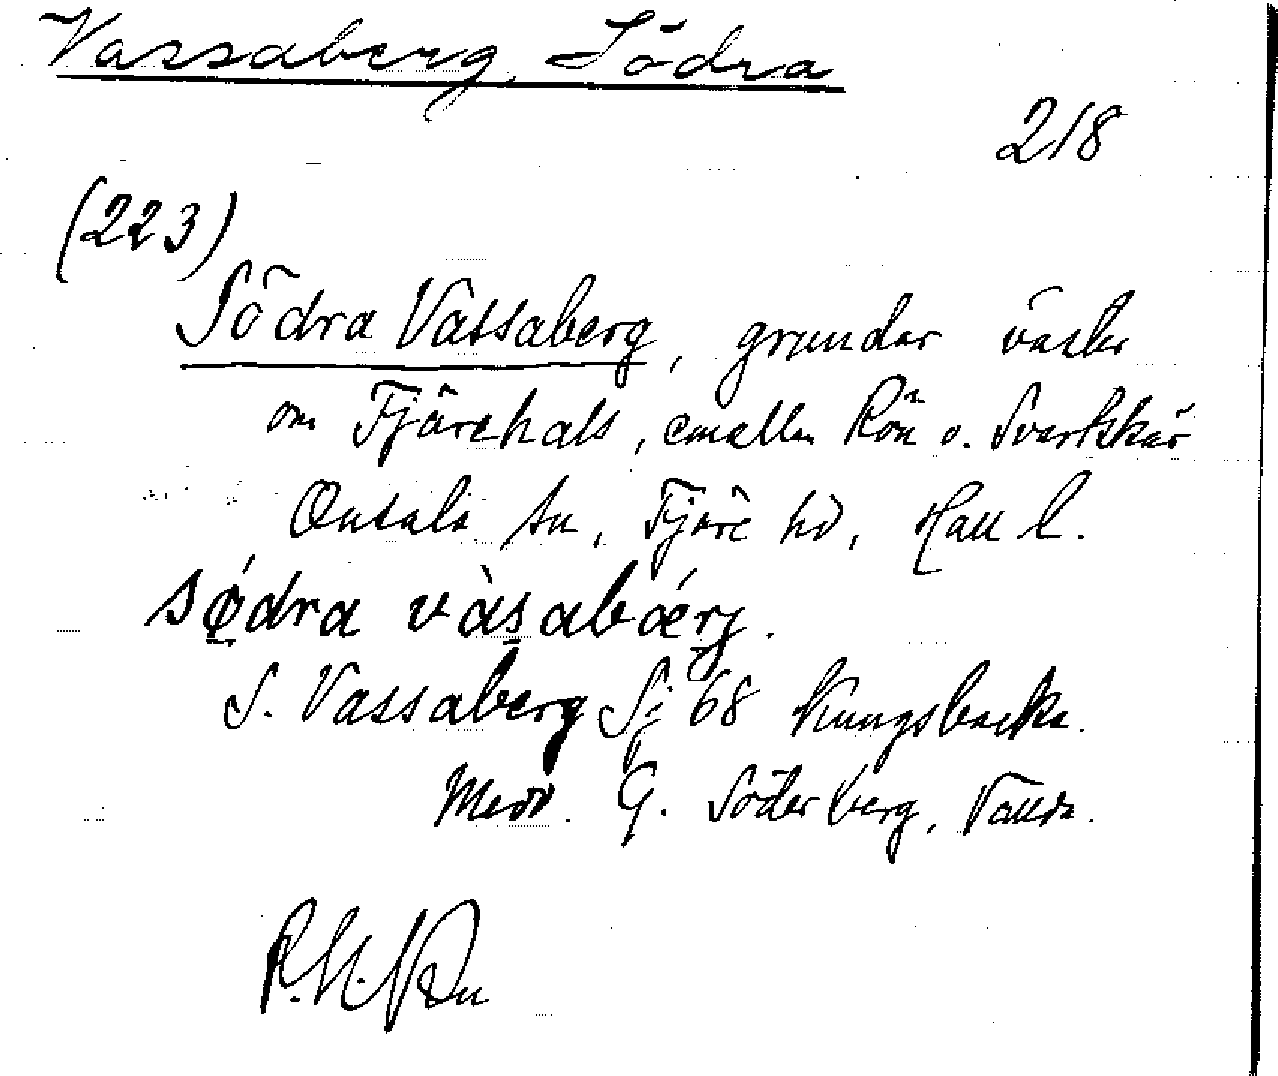 Vassaberg, Södra
218
(223)
Södra Vassaberg, grundar väster
om Fjärehals, emellan Rön o. Svartskär
Onsala sn, Fjäre hd, Hall l.
sǿdra vàsabǽrj.
S. Vassaberg Sj: 68 Kungsbacka.
Medd. G. Söderberg, Vallda.